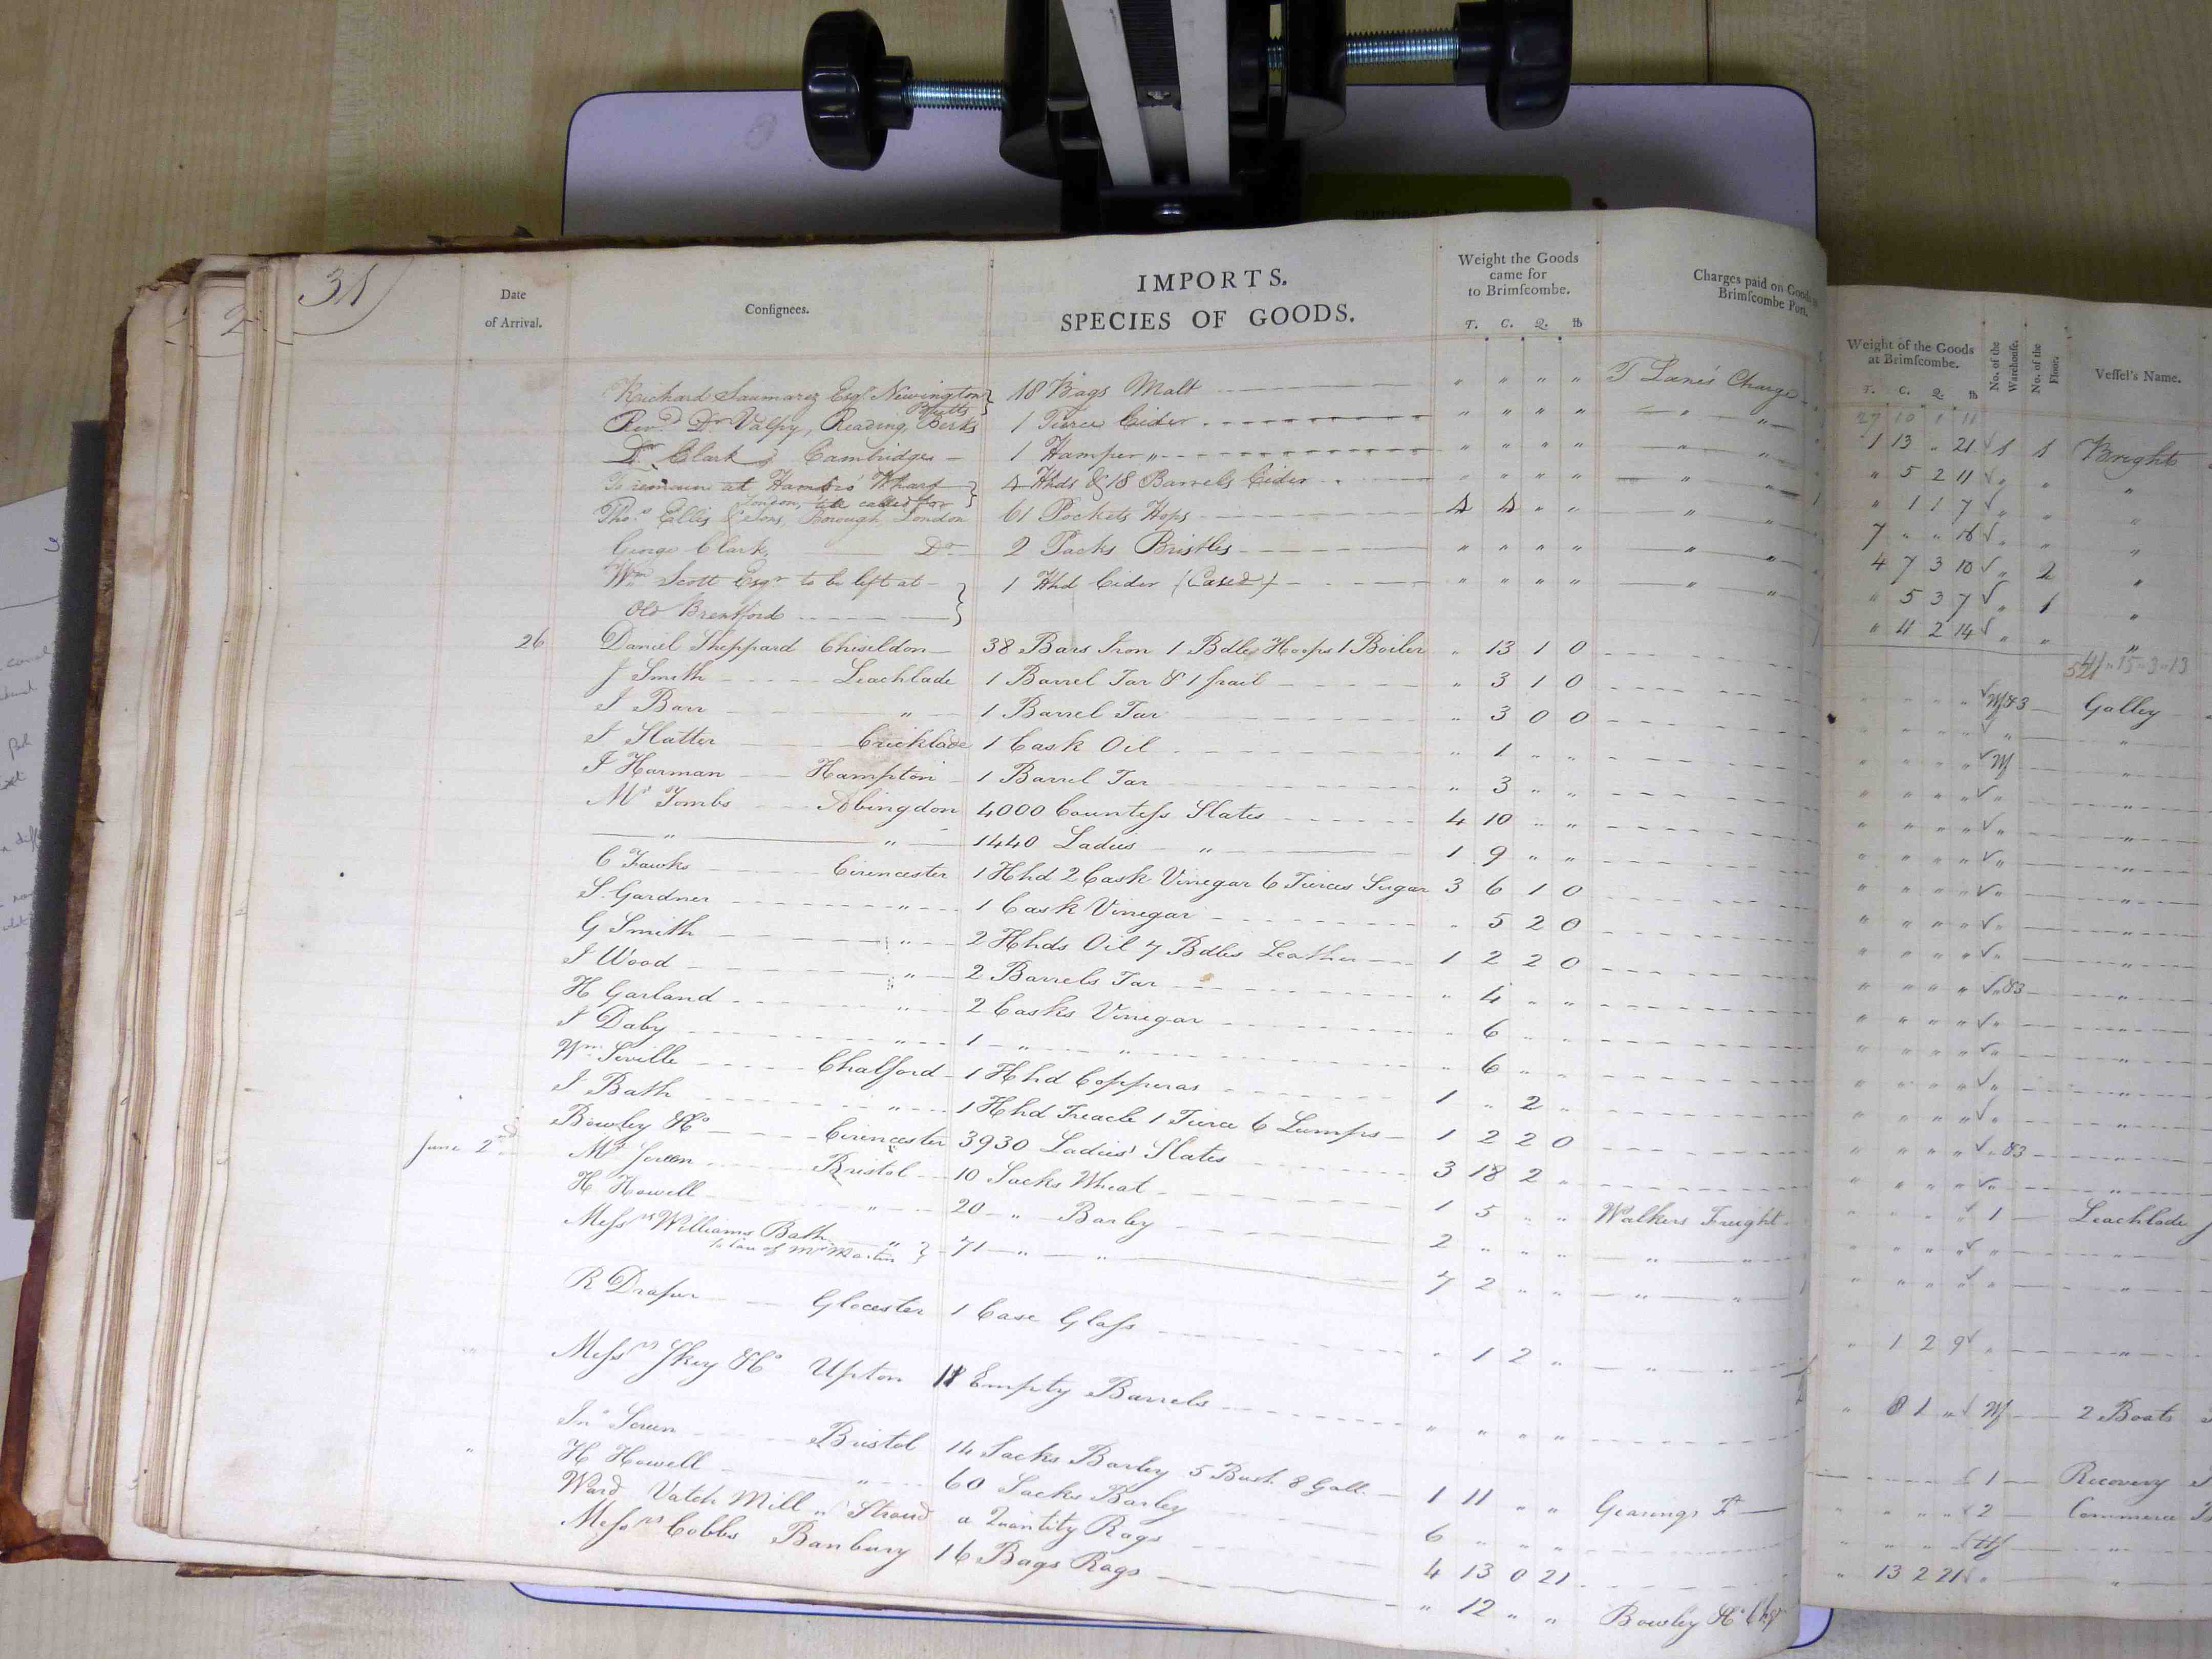 31
Date of Arrival. Consignees. IMPORTS. SPECIES OF GOODS. Weight the Goods came for to Brimscombe. T. C. Q. lb Charges paid on Goods Brimscombe Port.
Weight of the Goods at Brimscombe. T. C. Q. lb No. of the Warehouse. No. of the Floor. Vessel's Name.
27 10 1 11
Richard Saumarez Esqr. Newington Butts } 18 Bags Malt " " " " T Lane's Charge 1 13 " 21 √ 1 1 Bright
Revd. Dr Valpy, Reading, Berks 1 Tierce Cider " " " " " " " 5 2 11 √ " " "
Dr Clark, Cambridge 1 Hamper " " " " " " " " 1 1 7 √ " " "
To remain at Hambro' Wharf London, till called for } 4 Hhds & 18 Barrels Cider " " " " " " 7 " " 18 √ " " "
Thos. Ellis & Sons, Borough London 61 Pockets Hops 4 4 " " " " 4 7 3 10 √ " 2 "
George Clark, Do 2 Packs Bristles " " " " " " " 5 3 7 √ " 1 "
Wm Scott Esqr to be left at
Old Brentford } 1 Hhd Cider (Cased) " " " " " " " 4 2 14 √ " " "
26 Daniel Sheppard Chiseldon 38 Bars Iron 1 Bdle Hoops 1 Boiler " 13 1 0 Galley
J Smith Leachlade 1 Barrel Tar & 1 frail " 3 1 0
J Barr " 1 Barrel Tar " 3 0 0
J Slatter Cricklade 1 Cask Oil " 1 " "
J Harman Hampton 1 Barrel Tar " 3 " "
Mr Tombs Abingdon 4000 Countess Slates 4 10 " "
" " 1440 Ladies " 1 9 " "
C Fawks Cirencester 1 Hhd 2 Cask Vinegar 6 Tierces Sugar 3 6 1 0
S. Gardner " 1 Cask Vinegar " 5 2 0
G Smith " 2 Hhds Oil 7 Bdles Leather 1 2 2 0
J Wood " 2 Barrels Tar " 4 " "
H Garland " 2 Casks Vinegar " 6 " "
J Daby " 1 " " " 6 " "
Wm Seville Chalford 1 Hhd Copperas 1 " 2 "
J Bath " 1 Hhd Treacle 1 Tierce 6 Lumps 1 2 2 0
Bowley & Co Cirencester 3930 Ladies' Slates 3 18 2 "
June 2nd Mr Bristol 10 Sacks Wheat 1 5 " " Walkers Freight 1 Leachlade
H Howell " 20 " Barley 2 " " " " "
Messrs Williams Bath " to care of Mr Martin } 71 " " 7 2 " " " "
R Draper Glocester 1 Case Glass " 1 2 " " " " 1 2 9 √ " "
Messrs Skey & Co Upton Empty Barrels " " " " 2 Boats
" Jno Bristol 14 Sacks Barley 5 Bush. 8 Gall. 1 11 " " Gearings Ft 1 Recovery
H Howell " 60 Sacks Barley 6 " " " 2 Commerce
Ward Vatch Mill nr Stroud a Quantity Rags 4 13 0 21
Messrs Cobbs Banbury 16 Bags Rags " 12 " " Bowley & Co Chgs " 13 2 21